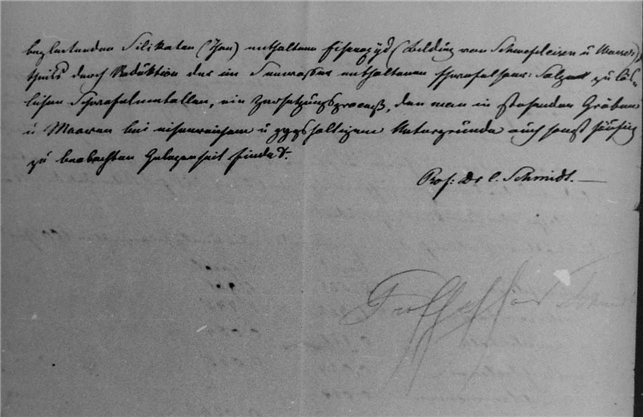 begleitenden Silikaten (Thon) enthaltenen Eisenoxyd (Bildung von Schwefeleisen u
theils durch Reduktion der im enthaltenen schwefelsauren Salze zu
lichen Schwefelmetallen, ein Zersetzungsprocess, den man in stehenden Gräben
u Mooren bei eisenreichem u gypshaltigem Untergrunde auch sonst häufig
zu beobachten Gelegenheit findet.
Prof: Dr C. Schmidt.
Professor Schmidt